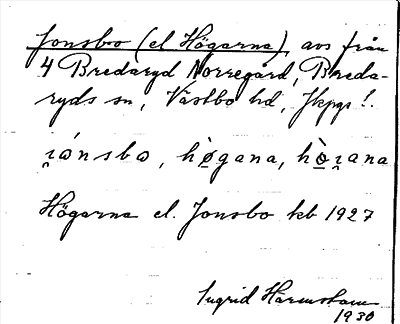 Jonsbo (el Högarna), avs från
4 Bredaryd Norregård, Breda-
ryds sn, Västbo hd, Jkpgs l.
i̯ɷ́nsbɷ, hø̀gana, hø̀i̯ana
Högarna el. Jonsbo kb 1927
Ingrid
1930